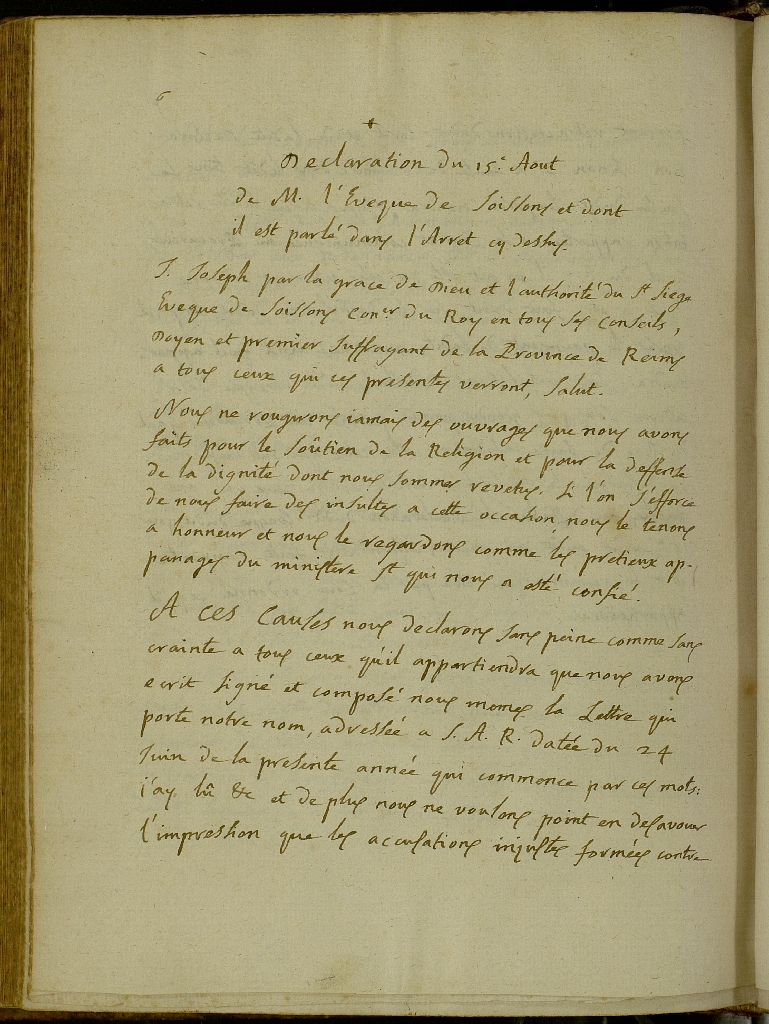 6
+
Declaration du 15.e Aout
de M. l'Eveque de Soissons et dont
il est parlé dans l'Arret cy dessus.
J. Joseph par la grace de Dieu et l'authorité du St Siege
Eveque de Soissons Coner du Roy en tous ses Conseils,
Doyen et premier Suffragant de la Province de Reims
a tous ceux qui ces presentes verront, Salut.
Nous ne rougirons iamais des ouvrages que nous avons
faits pour le soûtien de la Religion et pour la deffense
de la dignité dont nous sommes revetus. Si l'on s'efforce
de nous faire des insultes a cette occasion nous le tenons
a honneur et nous le regardons comme les pretieux ap-
panages du ministere St qui nous a esté confié.
A ces Causes nous declarons sans peine comme sans
crainte a tous ceux qu'il appartiendra que nous avons
ecrit signé et composé nous memes la Lettre qui
porte notre nom, adressée a S. A. R. datée du 24
Juin de la presente année qui commence par ces mots:
i'ay lû &c et de plus nous ne voulons point en desavouer
l'impression que les accusations injustes formées contre